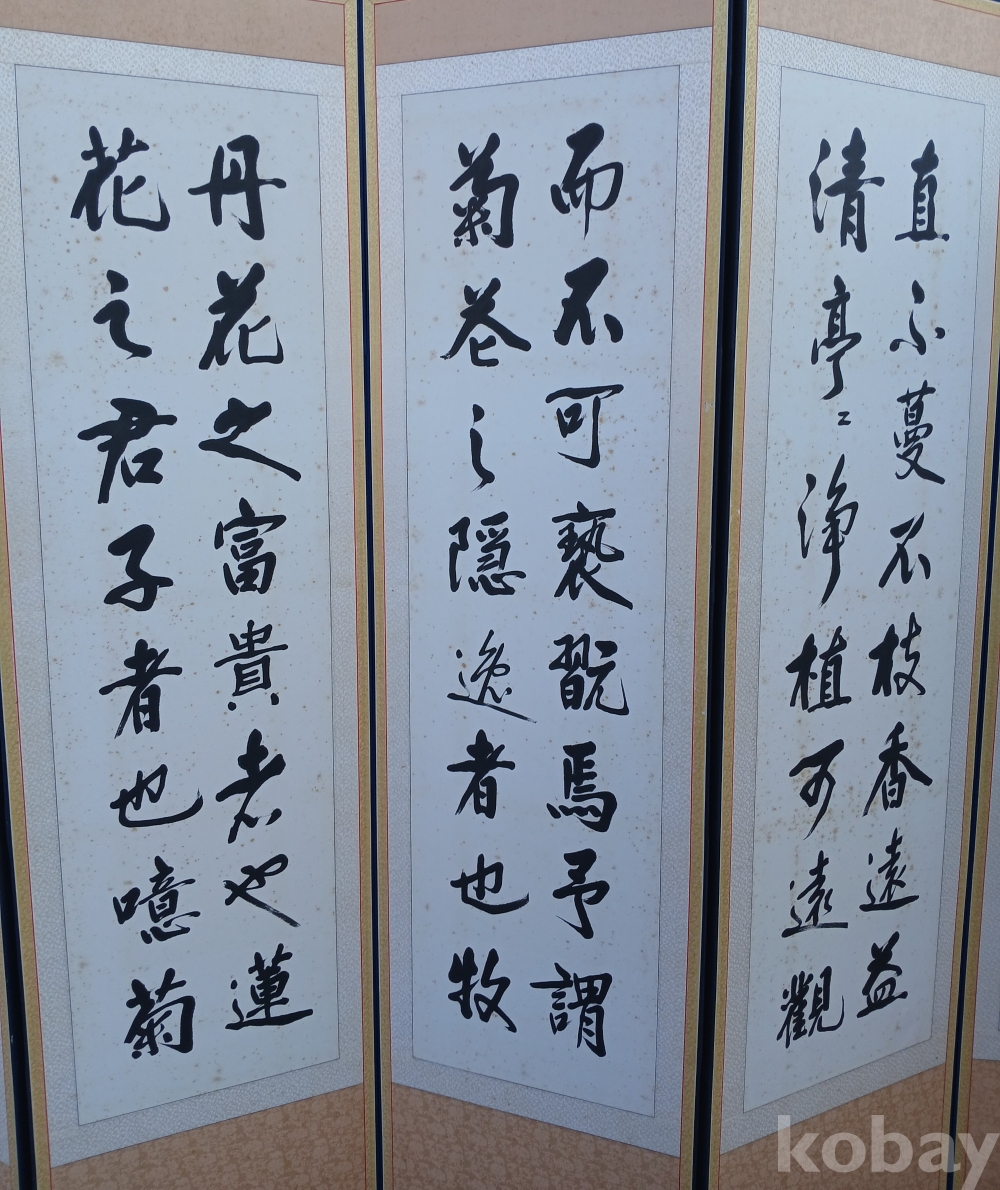 直不蔓不枝香遠益
清亭〻淨植可遠觀
而不可褻翫焉予謂
菊花之隱逸者也牧
丹花之富貴者也蓮
花之君子者也噫菊
kobay